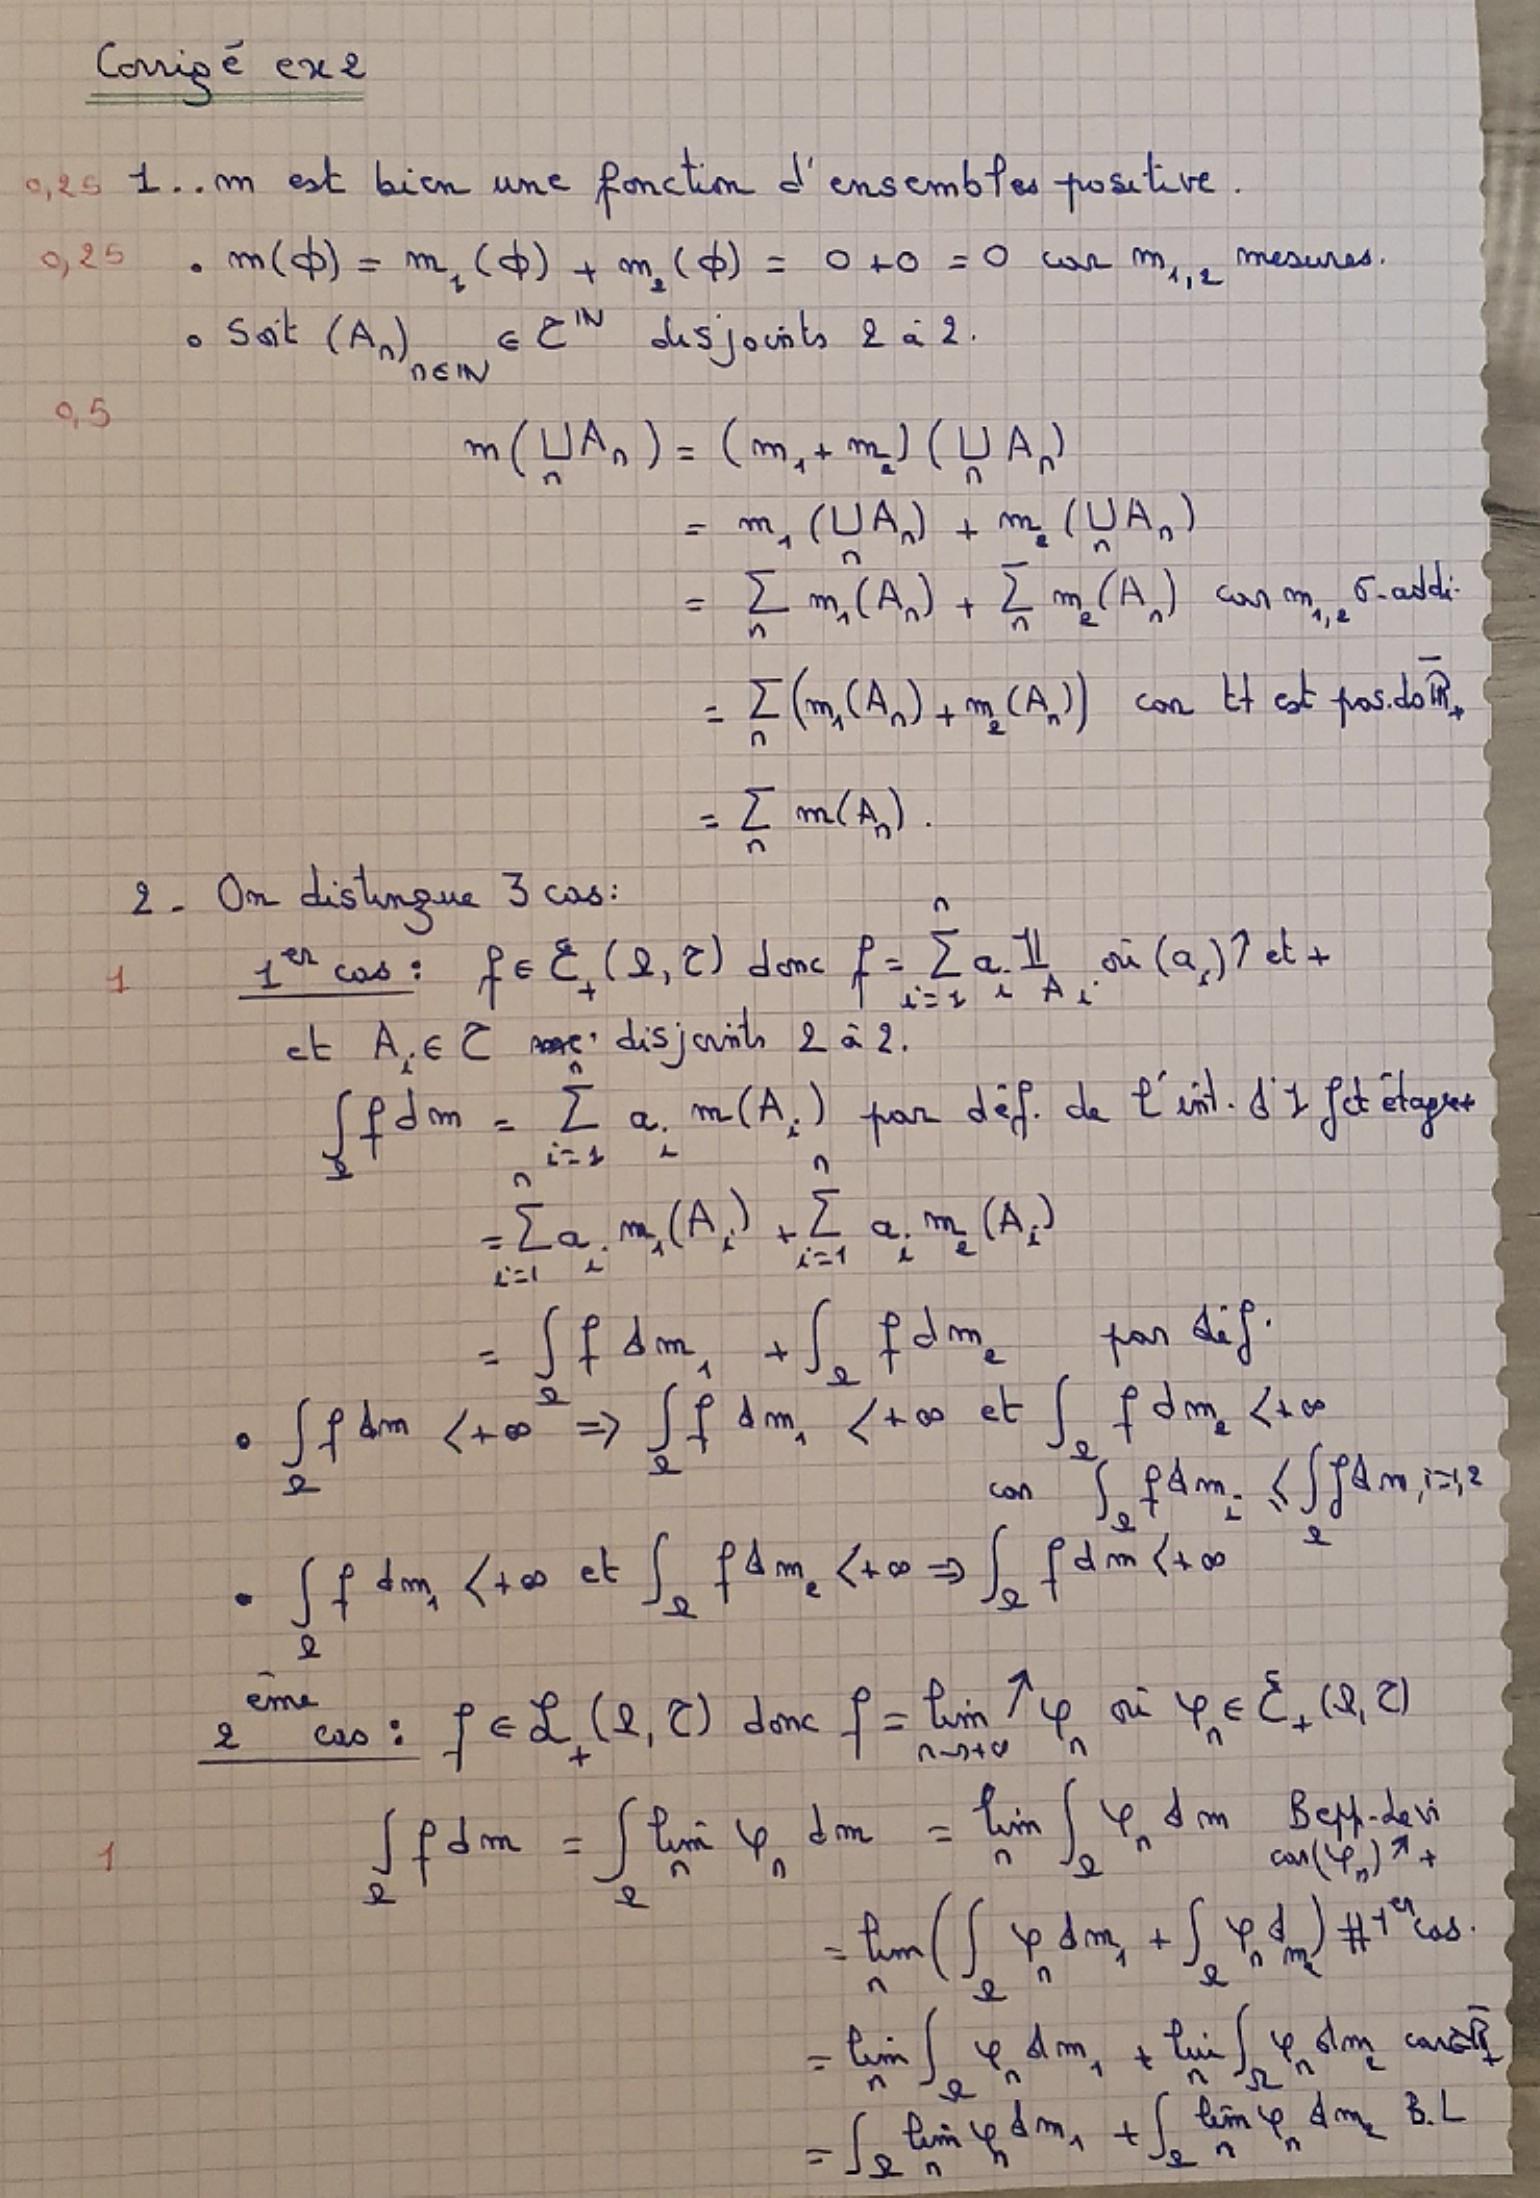 Corrigé ex 2
0,25 1.. m est bien une fonction d'ensembles positive.
0,25 • m(ϕ) = m₁(ϕ) + m₂(ϕ) = 0+0 = 0 car m₁,₂ mesures.
• Soit (Aₙ)ₙ∈ℕ ∈ ℭ^ℕ disjoints 2 à 2.
0,5
m(⊔ₙ Aₙ) = (m₁ + m₂)(⊔ₙ Aₙ)
= m₁(⋃ₙ Aₙ) + m₂(⋃ₙ Aₙ)
= Σₙ m₁(Aₙ) + Σₙ m₂(Aₙ) car m₁,₂ σ-addi.
= Σₙ (m₁(Aₙ) + m₂(Aₙ)) car tt est pos. ds ℝ̄₊
= Σₙ m(Aₙ).
2 - On distingue 3 cas :
1 1er cas : f ∈ ℰ₊(Ω, ℭ) donc f = Σᵢ₌₁ⁿ aᵢ 𝟙_Aᵢ où (aᵢ)↗ et +
et Aᵢ ∈ ℭ disjoints 2 à 2.
∫_Ω f dm = Σᵢ₌₁ⁿ aᵢ m(Aᵢ) par déf. de l'int. d'1 fct étagée+
= Σᵢ₌₁ⁿ aᵢ m₁(Aᵢ) + Σᵢ₌₁ⁿ aᵢ m₂(Aᵢ)
= ∫_Ω f dm₁ + ∫_Ω f dm₂ par déf.
• ∫_Ω f dm < +∞ ⇒ ∫_Ω f dm₁ < +∞ et ∫_Ω f dm₂ < +∞
car ∫_Ω f dmᵢ ≤ ∫_Ω f dm, i=1,2
• ∫_Ω f dm₁ < +∞ et ∫_Ω f dm₂ < +∞ ⇒ ∫_Ω f dm < +∞
2ème cas : f ∈ ℒ₊(Ω, ℭ) donc f = lim↗ₙ→+∞ φₙ où φₙ ∈ ℰ₊(Ω, ℭ)
1 ∫_Ω f dm = ∫_Ω limₙ φₙ dm = limₙ ∫_Ω φₙ dm Bepp-Levi
car (φₙ)↗ +
= limₙ (∫_Ω φₙ dm₁ + ∫_Ω φₙ dm₂) # 1er cas.
= limₙ ∫_Ω φₙ dm₁ + limₙ ∫_Ω φₙ dm₂ car ℝ̄₊
= ∫_Ω limₙ φₙ dm₁ + ∫_Ω limₙ φₙ dm₂ B.L